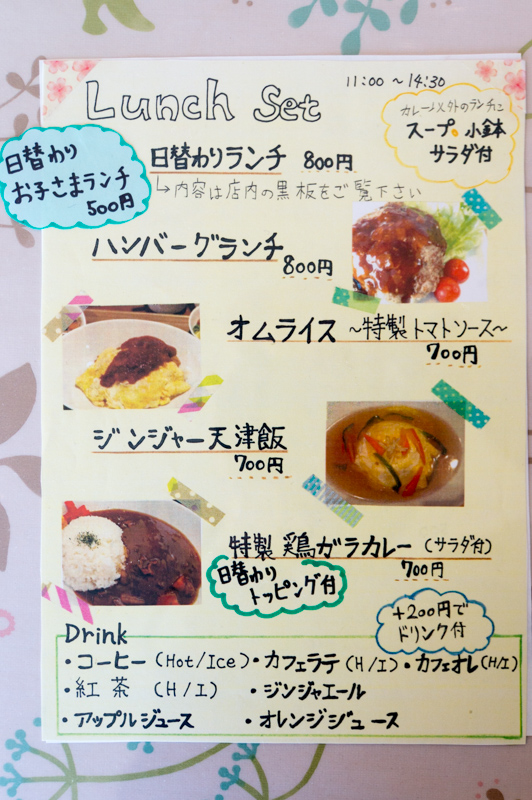 Lunch Set
11:00 〜 14:30
カレー以外のランチに
スープ・小鉢
サラダ付
日替わり
お子さまランチ
500円
日替わりランチ 800円
↳内容は店内の黒板をご覧下さい
ハンバーグランチ
800円
オムライス 〜特製トマトソース〜
700円
ジンジャー天津飯
700円
特製 鶏ガラカレー (サラダ付)
700円
日替わり
トッピング付
+200円で
ドリンク付
Drink
・コーヒー (Hot/Ice) ・カフェラテ (H/I) ・カフェオレ (H/I)
・紅茶 (H/I) ・ジンジャエール
・アップルジュース ・オレンジジュース